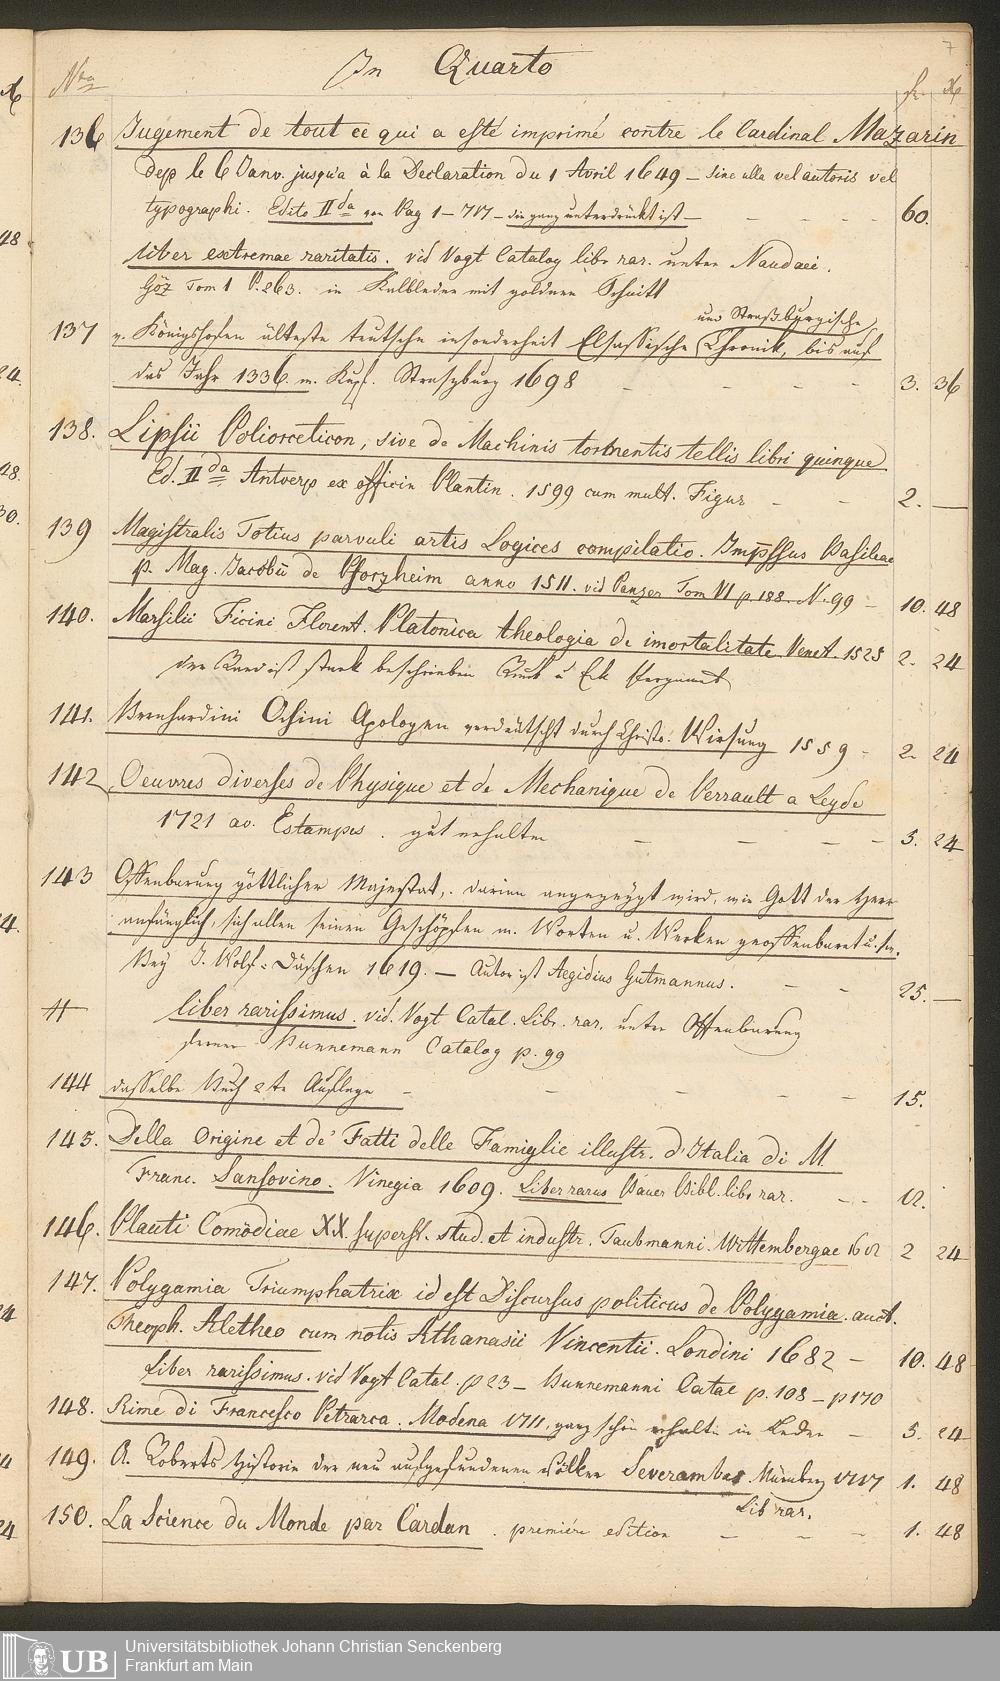 7
In Quarto
Nro fr. X
136 Jugement de tout ce qui a esté imprimé contre le Cardinal Mazarin
dep. le 6 Janv. jusqu'a à la Declaration du 1 Avril 1649 – sine ulla vel autoris vel
typographi. Edito IIda von Pag 1–717 – die ganz unterdrückt ist – 60.
liber extremae raritatis. vid Vogt Catalog libr rar. unter Naudaei.
Göz Tom 1 P. 263. in Kalbleder mit goldnen Schnitt
und Straßburgische
137 v. Königshofen älteste teutsche insonderheit Elsassische Chronik, bis auf
das Jahr 1336. m. Kupf. Straszburg 1698 – – – – 3. 36
138. Lipsii Poliorceticon, sive de Machinis tormentis tellis libri quinque
Ed. IIda Antverp ex officin Plantin. 1599 cum mult. Figur – – 2. —
139 Magistralis Totius parvuli artis Logices compilatio. Impssus Basileae
p. Mag. Jacobū de Pforzheim anno 1511. vid Panzer Tom VI p. 188. N. 99 – 10. 48
140. Marsilii Ficini Florent. Platonica theologia de imortalitate Venet. 1525 2. 24
der Rand ist stark beschrieben Rück u Eck Pergament
141. Bernhardini Ochini Apologen verdeutscht durch Christo: Wirsung 1559 – 2. 24
142 Oeuvres diverses de Physique et de Mechanique de Perrault a Leyde
1721 av. Estampes. gut erhalten – – – – 5. 24
143 Offenbarung göttlicher Majestat, darinn angezeygt wird, wie Gott der Herr
anfänglich, sich allen seinen Geschöpfen m. Worten u. Werken geoffenbaret u. s. w.
Bey J. Wolf-Däschen 1619. — Autor ist Aegidius Gutmannus. – – 25. —
# liber rarissimus. vid. Vogt Catal. Libr. rar. unter Offenbarung
ferner Bunnemann Catalog p. 99
144 dasselbe Buch 2te Auflage – – – – – 15.
145. Della Origine et de' Fatti delle Famiglie illustr. d'Italia di M.
Franc. Sansovino. Vinegia 1609. Liber rarus Bauer Bibl. libr rar. – – 12.
146. Plauti Comödiae XX. superst. stud. et industr. Taubmanni. Wittembergae 1612 2 24
147. Polygamia Triumphatrix id est Discursus politicus de Polygamia. auct.
Theoph. Aletheo cum notis Athanasii Vincentii. Londini 1682 – 10. 48
Liber rarissimus. vid Vogt Catal. p 23 – Bunnemanni Catal p. 108 – p 170
148. Rime di Francesco Petrarca. Modena 1711, ganz schön erhalten in Leder – 5. 24
149. A. Roberts Historie der neu aufgefundenen Völker Severambes Nürnberg 1717 1. 48
Lib rar.
150. La Science du Monde par Cardan. premiére edition – – – 1. 48
UB Universitätsbibliothek Johann Christian Senckenberg
Frankfurt am Main